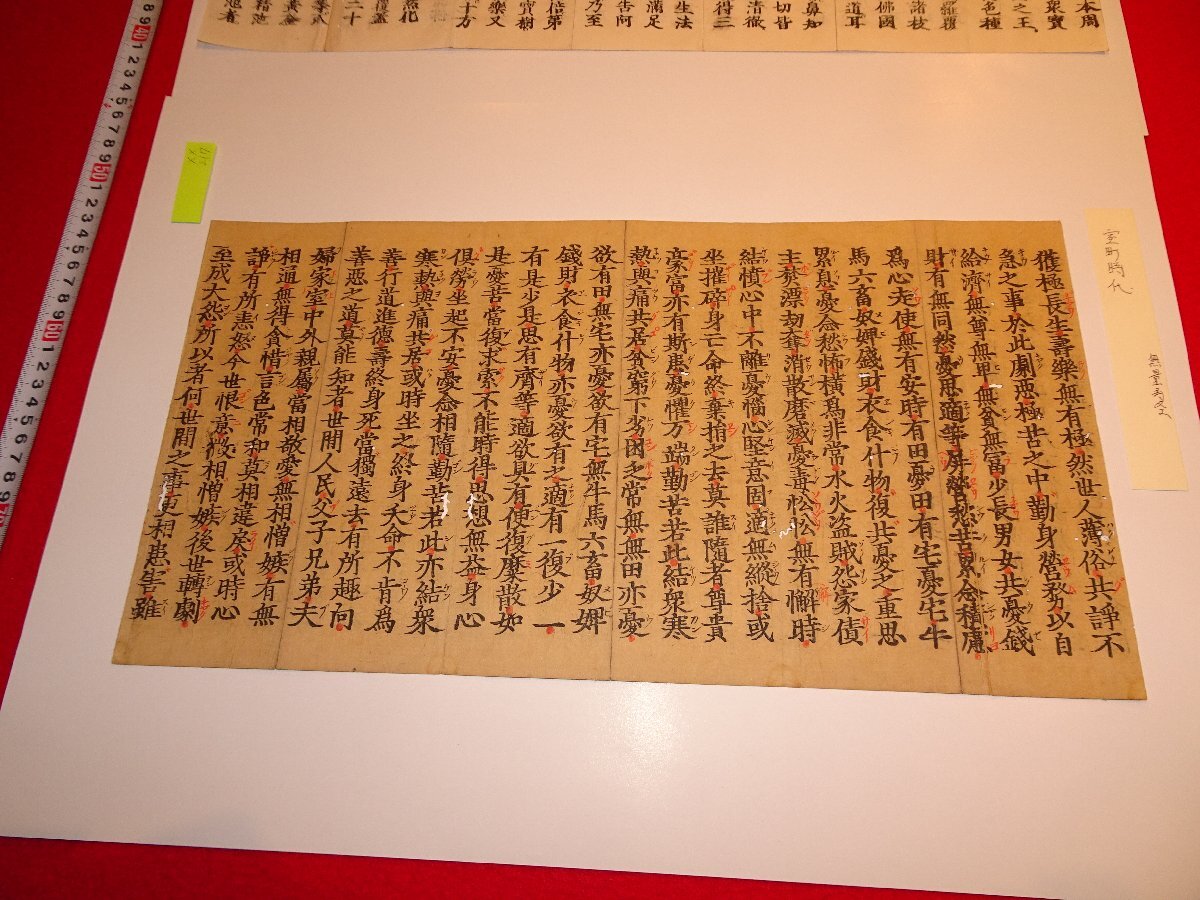 本周
衆寳
之王
多種
羅覆
諸枝
佛國
道耳
鼻知
切皆
清徹
得三
生法
滿足
告阿
乃至
倍弟
寳樹
樂又
十方
室町時代
無量寿経
獲極長生壽樂無有極然世人薄俗共諍不
急之事於此劇惡極苦之中勤身營務以自
給濟無尊無卑無貧無富少長男女共憂錢
財有無同然憂思適等屏營愁苦累念積慮
爲心走使無有安時有田憂田有宅憂宅牛
馬六畜奴婢錢財衣食什物復共憂之重思
累息憂念愁怖橫爲非常水火盜賊怨家債
主焚漂劫奪消散磨滅憂毒忪忪無有懈時
結憤心中不離憂惱心堅意固適無縱捨或
坐摧碎身亡命終棄捐之去莫誰隨者尊貴
豪富亦有斯患憂懼万端勤苦若此結衆寒
熱與痛共居貧窮下劣困乏常無無田亦憂
欲有田無宅亦憂欲有宅無牛馬六畜奴婢
錢財衣食什物亦憂欲有之適有一復少一
有是少是思有齊等適欲具有便復糜散如
是憂苦當復求索不能時得思想無益身心
俱勞坐起不安憂念相隨勤苦若此亦結衆
寒熱與痛共居或時坐之終身夭命不肯爲
善行道進德壽終身死當獨遠去有所趣向
善惡之道莫能知者世間人民父子兄弟夫
婦家室中外親屬當相敬愛無相憎嫉有無
相通無得貪惜言色常和莫相違戾或時心
諍有所恚怒今世恨意微相憎嫉後世轉劇
至成大怨所以者何世間之事更相患害雖